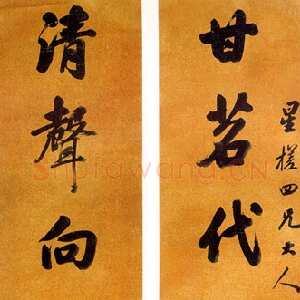 星槎四兄大人
甘茗代
清聲向